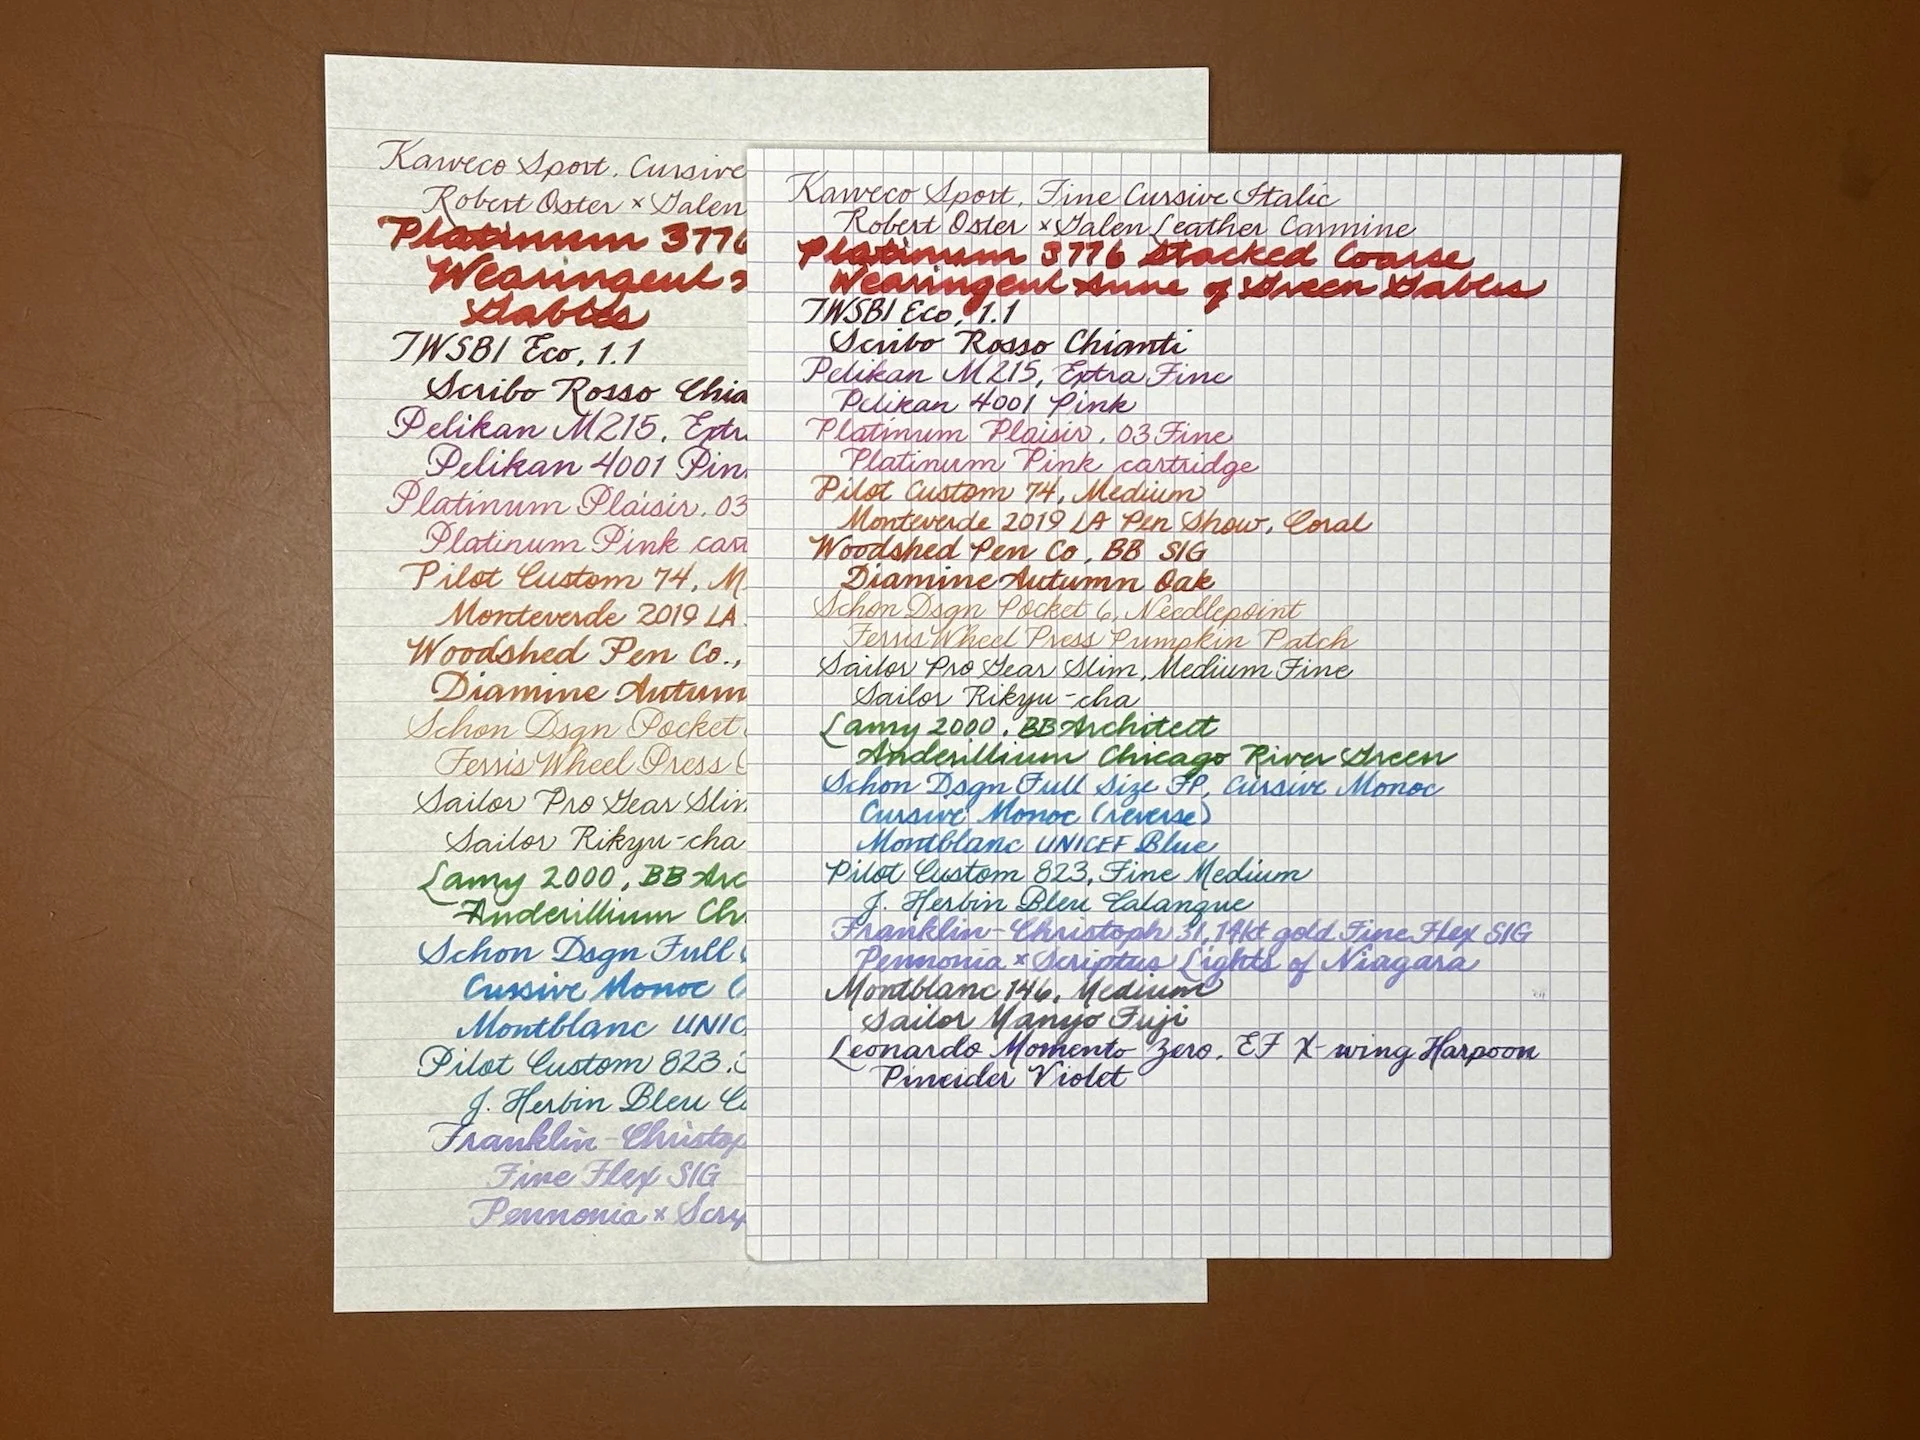 Kaweco Sport. Cursive
Robert Oster × Galen
Platinum 3776
Wearingeul
Gables
TWSBI Eco, 1.1
Scribo Rosso Chia
Pelikan M215, Extr
Pelikan 4001 Pin
Platinum Plaisir. 03
Platinum Pink cart
Pilot Custom 74, M
Monteverde 2019 LA
Woodshed Pen Co.,
Diamine Autum
Schon Dsgn Pocket
Ferris Wheel Press
Sailor Pro Gear Slim
Sailor Rikyu-cha
Lamy 2000, BB Arc
Anderillium Ch
Schon Dsgn Full
Cursive Monoc (
Montblanc UNIC
Pilot Custom 823.
J. Herbin Bleu Ca
Franklin-Christop
Fine Flex SIG
Pennonia × Scrip
Kaweco Sport, Fine Cursive Italic
Robert Oster × Galen Leather Carmine
Platinum 3776 Stacked Coarse
Wearingeul Anne of Green Gables
TWSBI Eco, 1.1
Scribo Rosso Chianti
Pelikan M215, Extra Fine
Pelikan 4001 Pink
Platinum Plaisir, 03 Fine
Platinum Pink cartridge
Pilot Custom 74, Medium
Monteverde 2019 LA Pen Show, Coral
Woodshed Pen Co, BB SIG
Diamine Autumn Oak
Schon Dsgn Pocket 6, Needlepoint
Ferris Wheel Press Pumpkin Patch
Sailor Pro Gear Slim, Medium Fine
Sailor Rikyu-cha
Lamy 2000, BB Architect
Anderillium Chicago River Green
Schon Dsgn Full Size FP, Cursive Monoc
Cursive Monoc (reverse)
Montblanc UNICEF Blue
Pilot Custom 823, Fine Medium
J. Herbin Bleu Calanque
Franklin-Christoph 31, 14kt gold Fine Flex SIG
Pennonia × Scriptus Lights of Niagara
Montblanc 146, Medium
Sailor Manyo Fuji
Leonardo Momento Zero, EF X-wing Harpoon
Pineider Violet